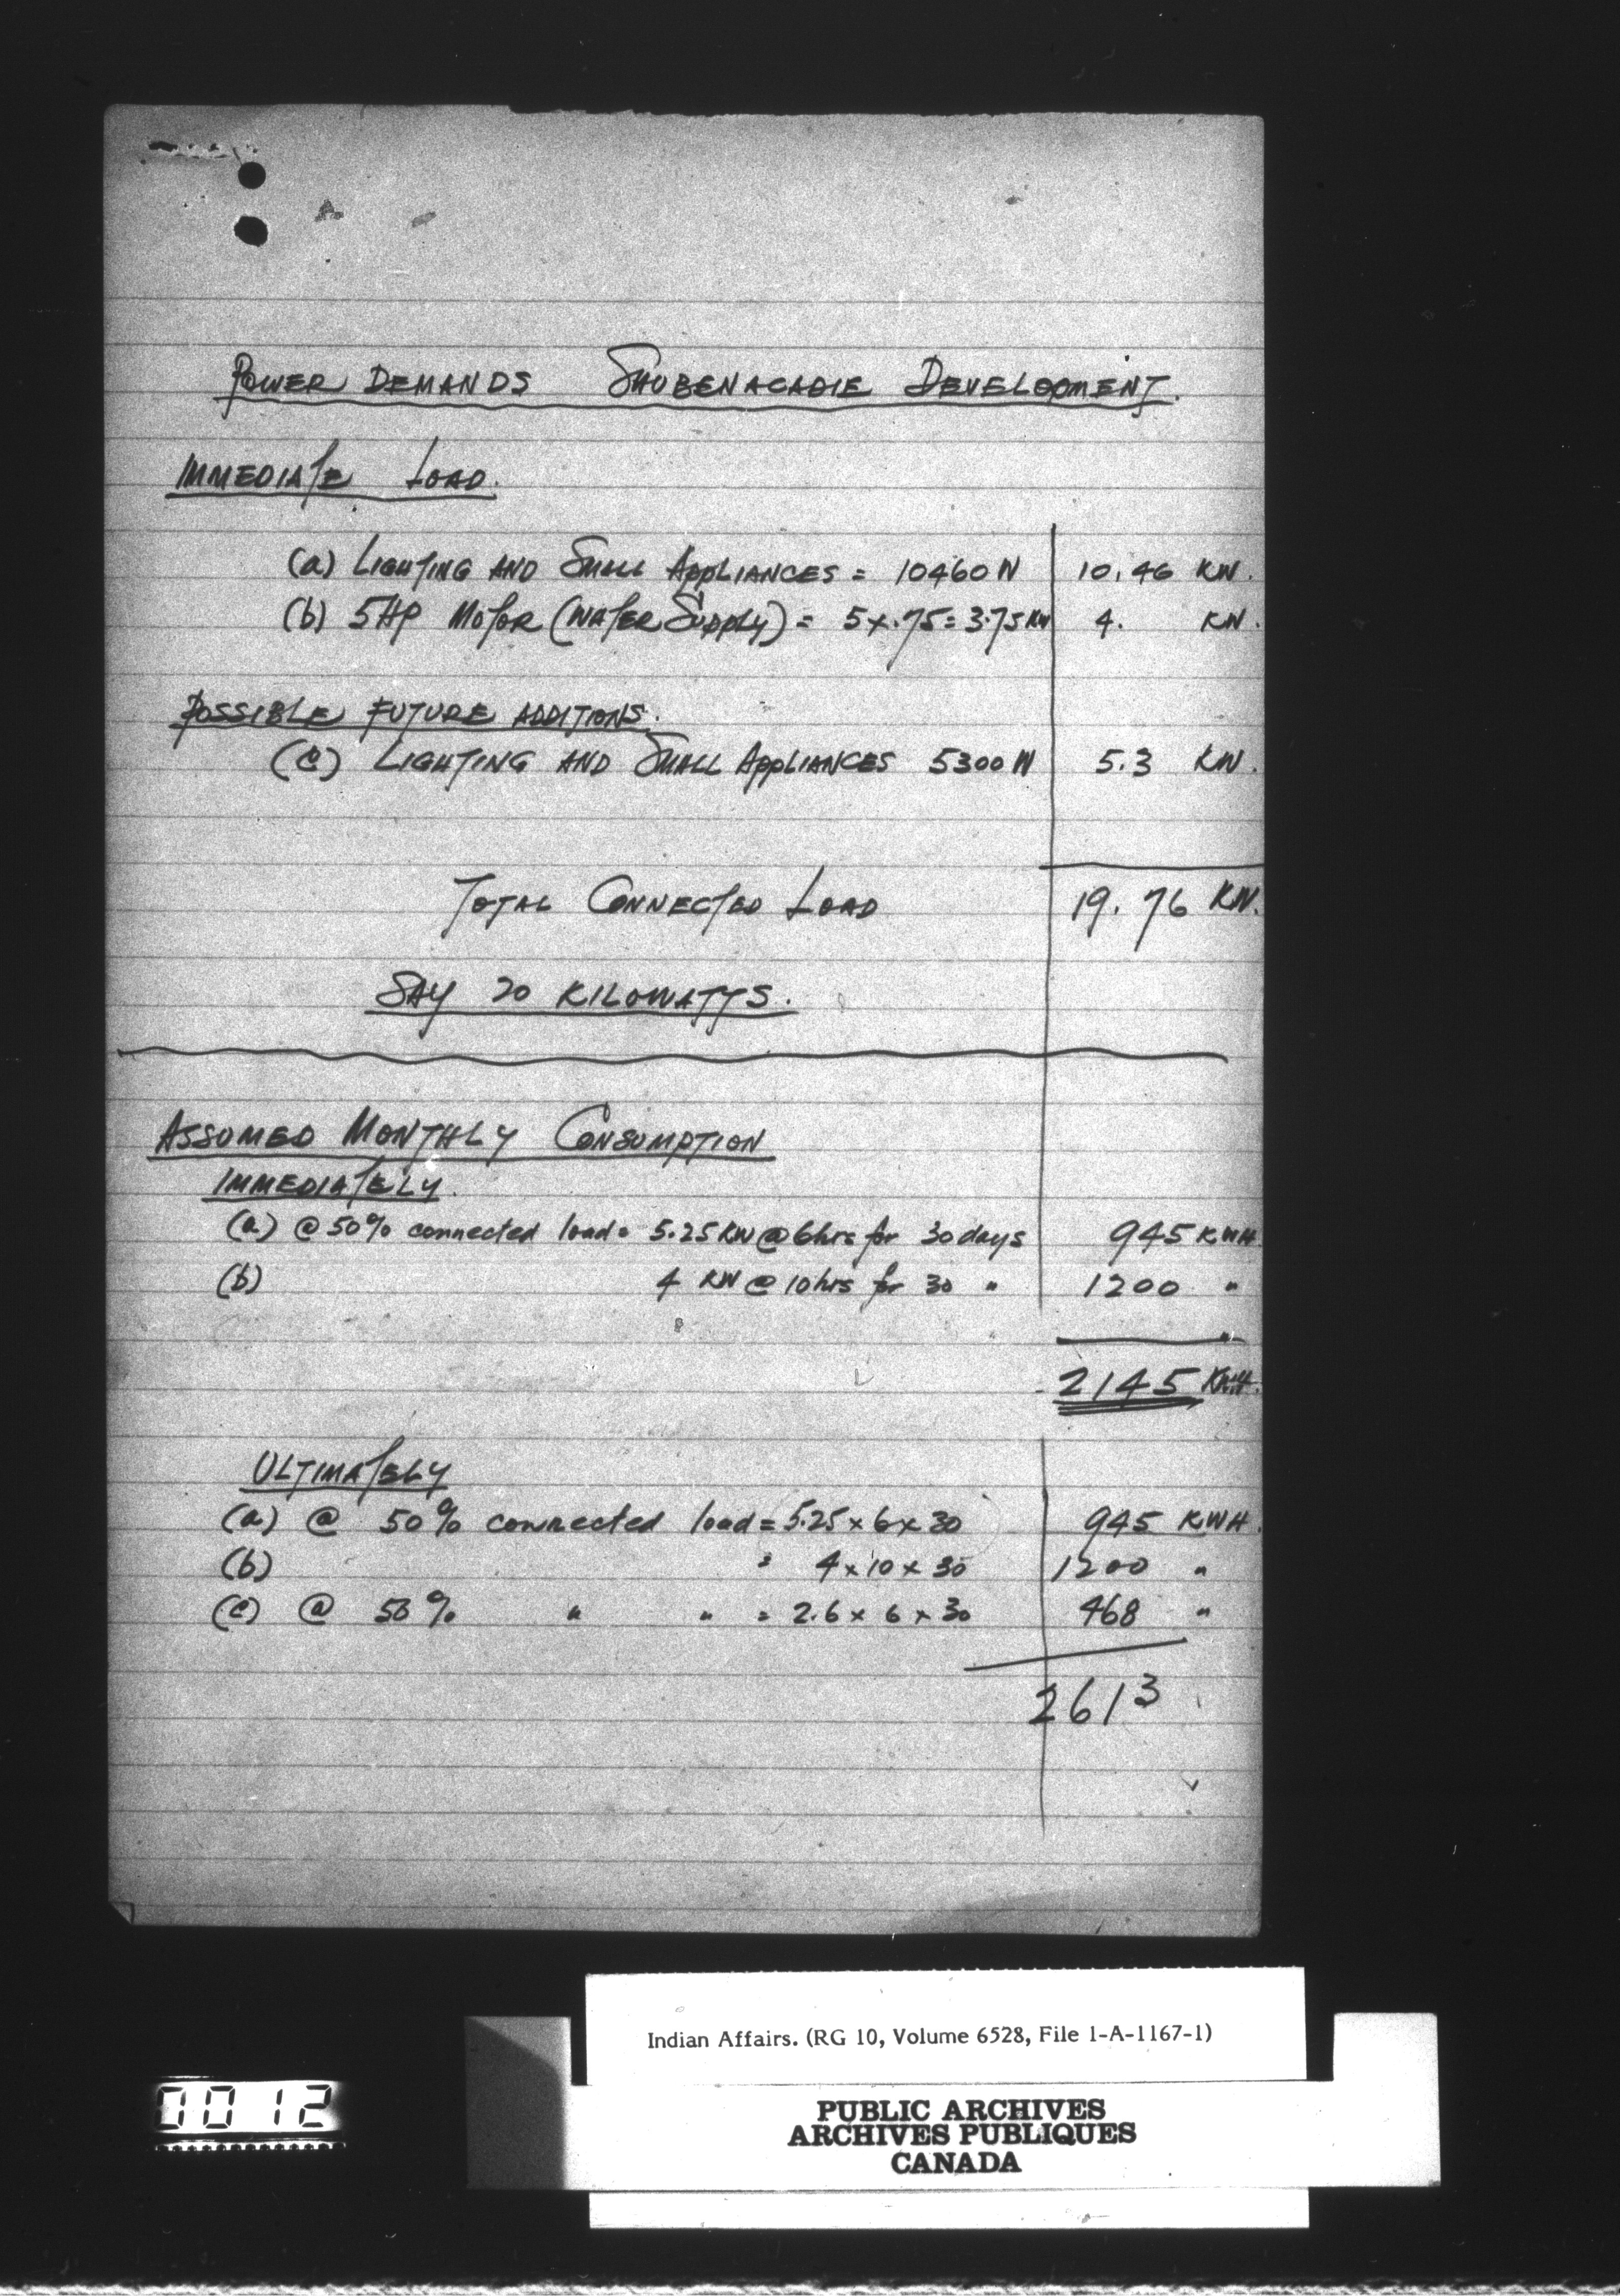 POWER DEMANDS SHUBENACADIE DEVELOPMENT.
IMMEDIATE LOAD.
(a) LIGHTING AND SMALL APPLIANCES = 10460 W 10.46 KW.
(b) 5HP MOTOR (WATER SUPPLY) = 5 x .75 = 3.75 KW 4. KW.
POSSIBLE FUTURE ADDITIONS.
(c) LIGHTING AND SMALL APPLIANCES 5300 W 5.3 KW.
TOTAL CONNECTED LOAD 19.76 KW.
SAY 20 KILOWATTS.
ASSUMED MONTHLY CONSUMPTION
IMMEDIATELY.
(a) @ 50% connected load = 5.25 KW @ 6hrs for 30 days 945 KWH
(b) 4 KW @ 10 hrs for 30 " 1200 "
2145 KWH.
ULTIMATELY
(a) @ 50% connected load = 5.25 x 6 x 30 945 KWH.
(b) = 4 x 10 x 30 1200 "
(c) @ 50% " " = 2.6 x 6 x 30 468 "
2613
Indian Affairs. (RG 10, Volume 6528, File 1-A-1167-1)
0012
PUBLIC ARCHIVES
ARCHIVES PUBLIQUES
CANADA